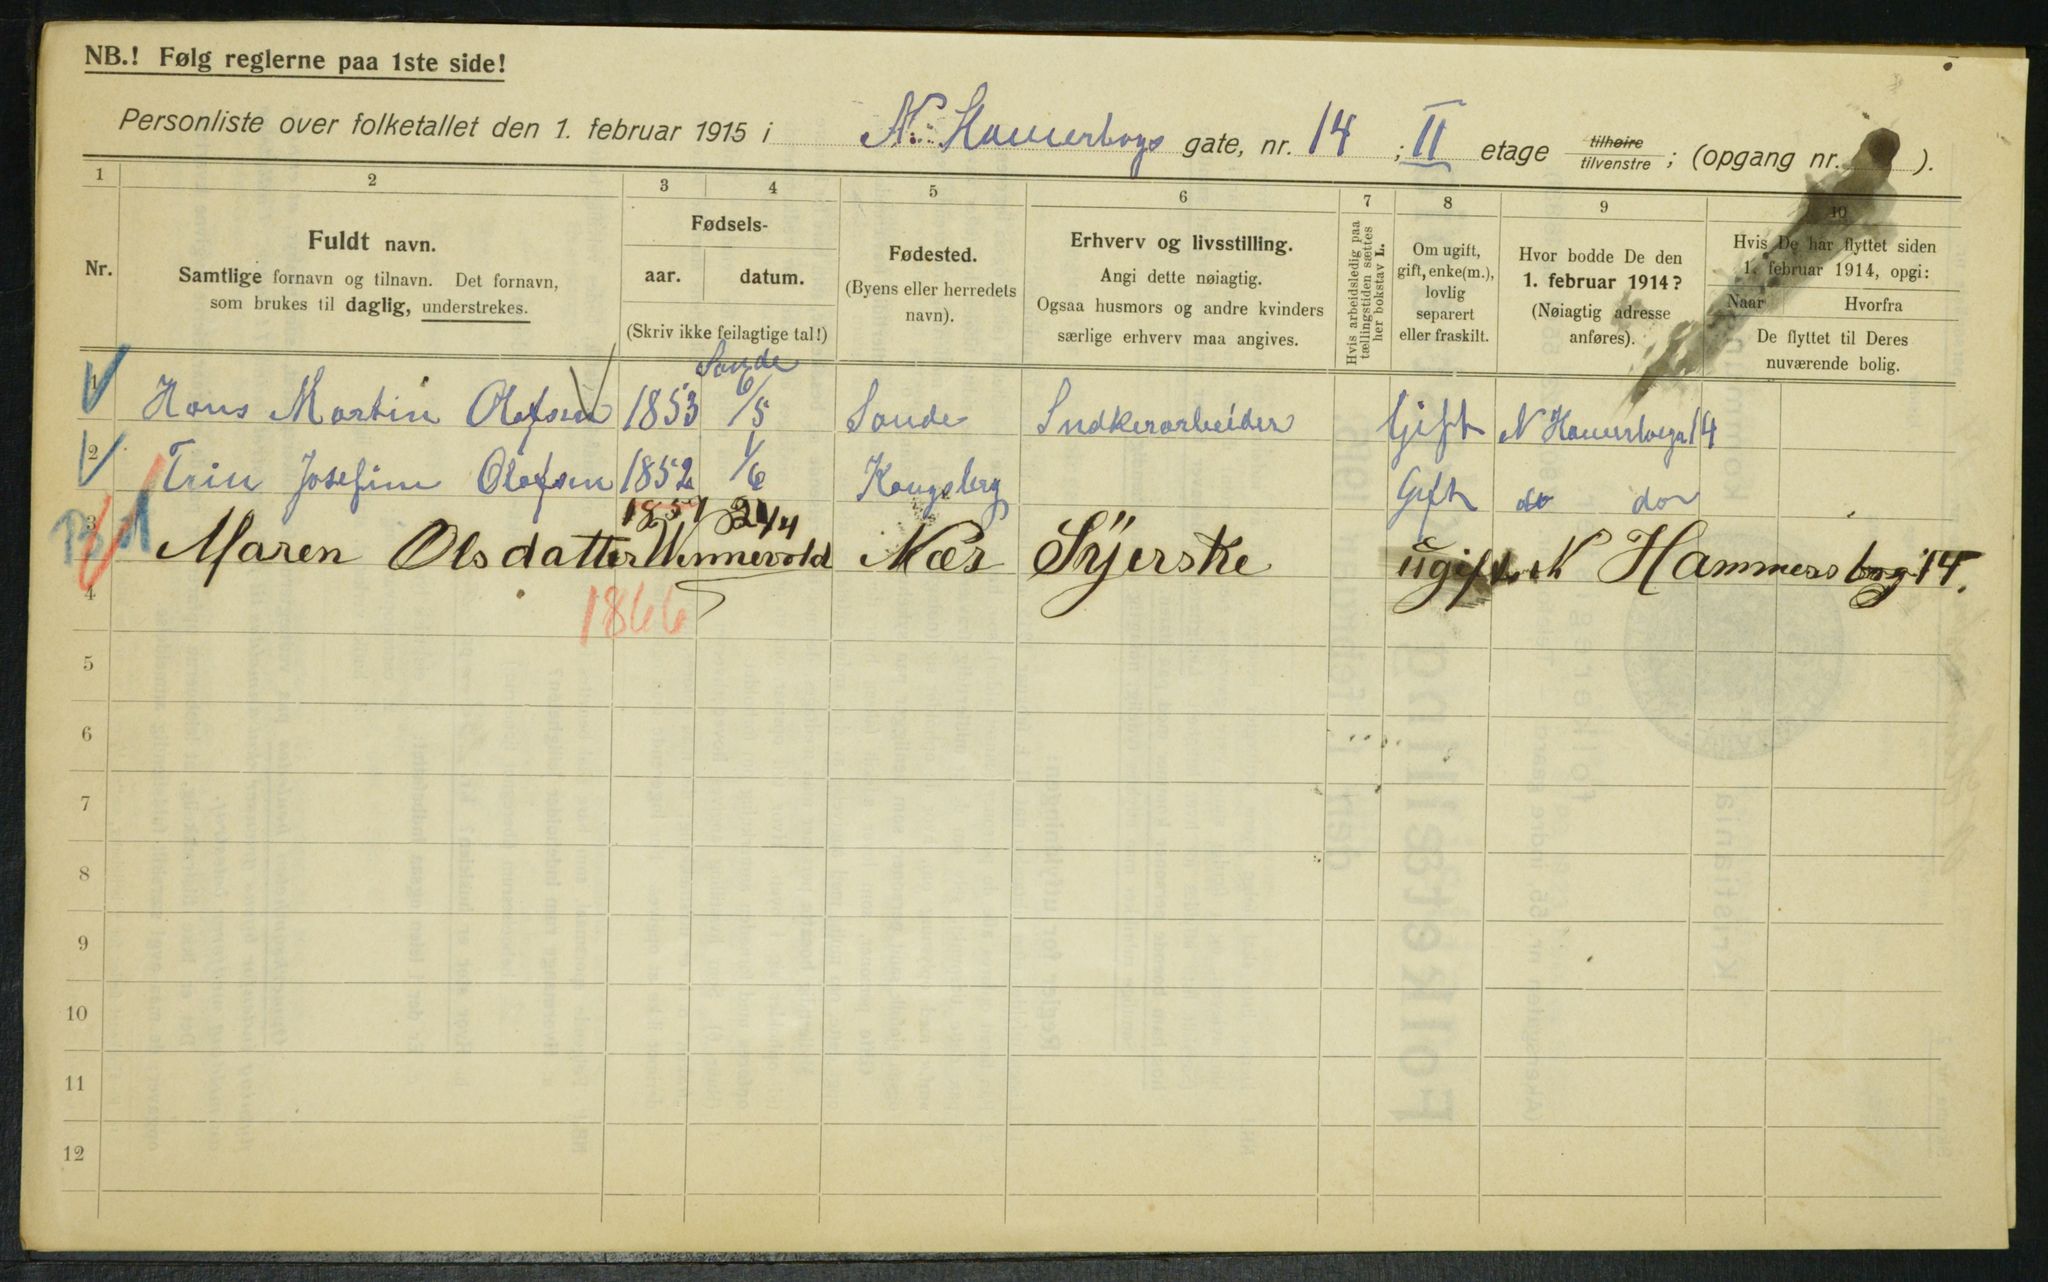 NB.! Følg reglerne paa 1ste side!
Personliste over folketallet den 1. februar 1915 i N. Hammerborgs gate, nr. 14 ; II etage tilhøire tilvenstre ; (opgang nr. ).
1 2 3 4 5 6 7 8 9 10
Nr.
Fuldt navn.
Samtlige fornavn og tilnavn. Det fornavn,
som brukes til daglig, understrekes.
Fødsels-
aar. datum.
(Skriv ikke feilagtige tal!)
Fødested.
(Byens eller herredets
navn).
Erhverv og livsstilling.
Angi dette nøiagtig.
Ogsaa husmors og andre kvinders
særlige erhverv maa angives.
Hvis arbeidsledig paa
tællingstiden sættes
her bokstav L.
Om ugift,
gift, enke(m.),
lovlig
separert
eller fraskilt.
Hvor bodde De den
1. februar 1914?
(Nøiagtig adresse
anføres).
Hvis De har flyttet siden
1. februar 1914, opgi:
Naar Hvorfra
De flyttet til Deres
nuværende bolig.
Sande
1 Hans Martin Olafsen 1853 6/5 Sande Snekerarbeider Gift N Hammerborgs 14
2 Trin Josefine Olafsen 1852 1/6 Kongsberg Gift do do
1857 24/4
3 Maren Olsdatter Wennevold Næs Syerske ugift N Hammersborg 14.
4 1866
5
6
7
8
9
10
11
12